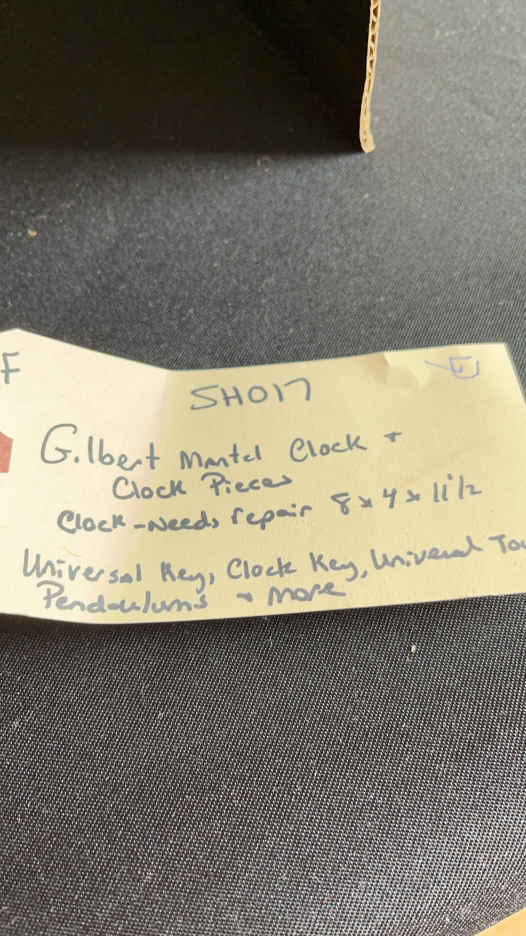 F
SH017
Gilbert Mantel Clock +
Clock Pieces
Clock-Needs repair 8 x 4 x 11 1/2
Universal Key, Clock Key, Univeral
Pendaulums + more